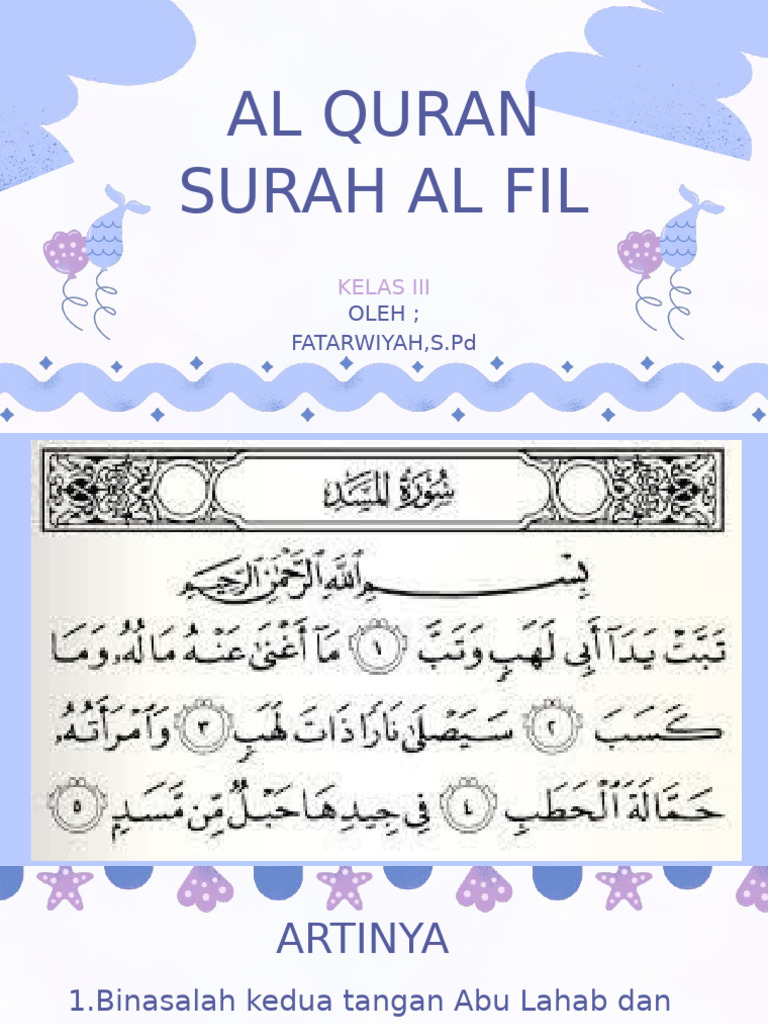 AL QURAN
SURAH AL FIL
KELAS III
OLEH ;
FATARWIYAH,S.Pd
سُورَةُ المَسَدِ
بِسْمِ ٱللَّهِ ٱلرَّحْمَٰنِ ٱلرَّحِيمِ
تَبَّتْ يَدَآ أَبِى لَهَبٍ وَتَبَّ ١ مَآ أَغْنَىٰ عَنْهُ مَالُهُۥ وَمَا
كَسَبَ ٢ سَيَصْلَىٰ نَارًا ذَاتَ لَهَبٍ ٣ وَٱمْرَأَتُهُۥ
حَمَّالَةَ ٱلْحَطَبِ ٤ فِى جِيدِهَا حَبْلٌ مِّن مَّسَدٍۭ ٥
ARTINYA
1.Binasalah kedua tangan Abu Lahab dan